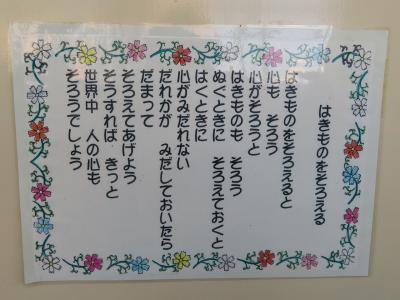 はきものをそろえる
はきものをそろえると
心も そろう
心がそろうと
はきものも そろう
ぬぐときに そろえておくと
はくときに
心がみだれない
だれかが みだしておいたら
だまって
そろえてあげよう
そうすれば きっと
世界中 人の心も
そろうでしょう